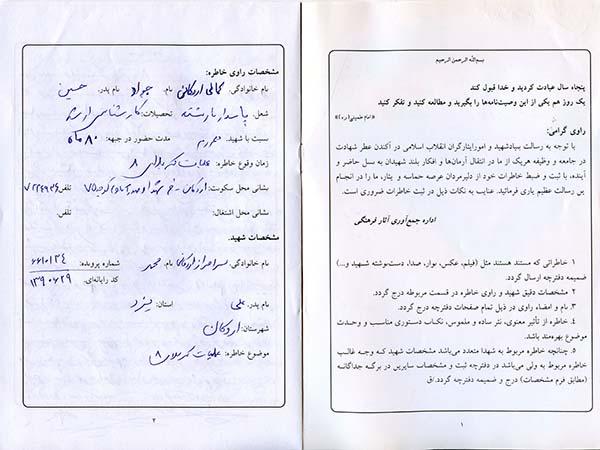 بسم‌الله الرحمن الرحیم
پنجاه سال عبادت کردید و خدا قبول کند
یک روز هم یکی از این وصیت‌نامه‌ها را بگیرید و مطالعه کنید و تفکر کنید
«امام خمینی (ره)»
راوی گرامی:
با توجه به رسالت بنیادشهید و امورایثارگران انقلاب اسلامی در آکندن عطر شهادت
در جامعه و وظیفه هریک از ما در انتقال آرمان‌ها و افکار بلند شهیدان به نسل حاضر و
آینده، با ثبت و ضبط خاطرات خود از دلیرمردان عرصه حماسه و یثار، ما را در انجام
ین رسالت عظیم یاری فرمائید. عنایت به نکات ذیل در ثبت خاطرات ضروری است.
اداره جمع‌آوری آثار فرهنگی
۱ خاطراتی که مستند هستند مثل (فیلم، عکس، نوار، صدا، دست‌نوشته شهید و...)
ضمیمه دفترچه ارسال گردد.
۲ مشخصات دقیق شهید و راوی خاطره در قسمت مربوطه درج گردد.
۳. نام و امضاء راوی در ذیل تمام صفحات دفترچه درج گردد.
۴. خاطره از تأثیر معنوی، نثر ساده و ملموس، نکات دستوری مناسب و وحدت
موضوع بهره‌مند باشد.
۵. چنانچه خاطره مربوط به شهدا متعدد می‌باشد مشخصات شهید که وجه غالب
خاطره مربوط به ولی می‌باشد در دفترچه ثبت و مشخصات سایرین در برگه جداگانه
(مطابق فرم مشخصات) درج و ضمیمه دفترچه گردد./ق
۱
مشخصات راوی خاطره:
نام خانوادگی: کمالی اردکانی نام: جواد نام پدر: حسین
شغل: پاسدار بازنشسته تحصیلات: کارشناسی ارشد
نسبت با شهید: همرزم مدت حضور در جبهه: ۸۰ ماه
زمان وقوع خاطره: عملیات کربلای ۸
نشانی محل سکونت: اردکان تلفن: ۷۲۲۴۹۳۴
نشانی محل اشتغال: تلفن:
مشخصات شهید:
نام خانوادگی: اردکانی نام: محمد شماره پرونده: ۶۶۱۰۱۳۴
کد رایانه‌ای: ۱۳۹۰۶۲۹
نام پدر: علی استان: یزد
شهرستان: اردکان
موضوع خاطره: عملیات کربلای ۸
۲